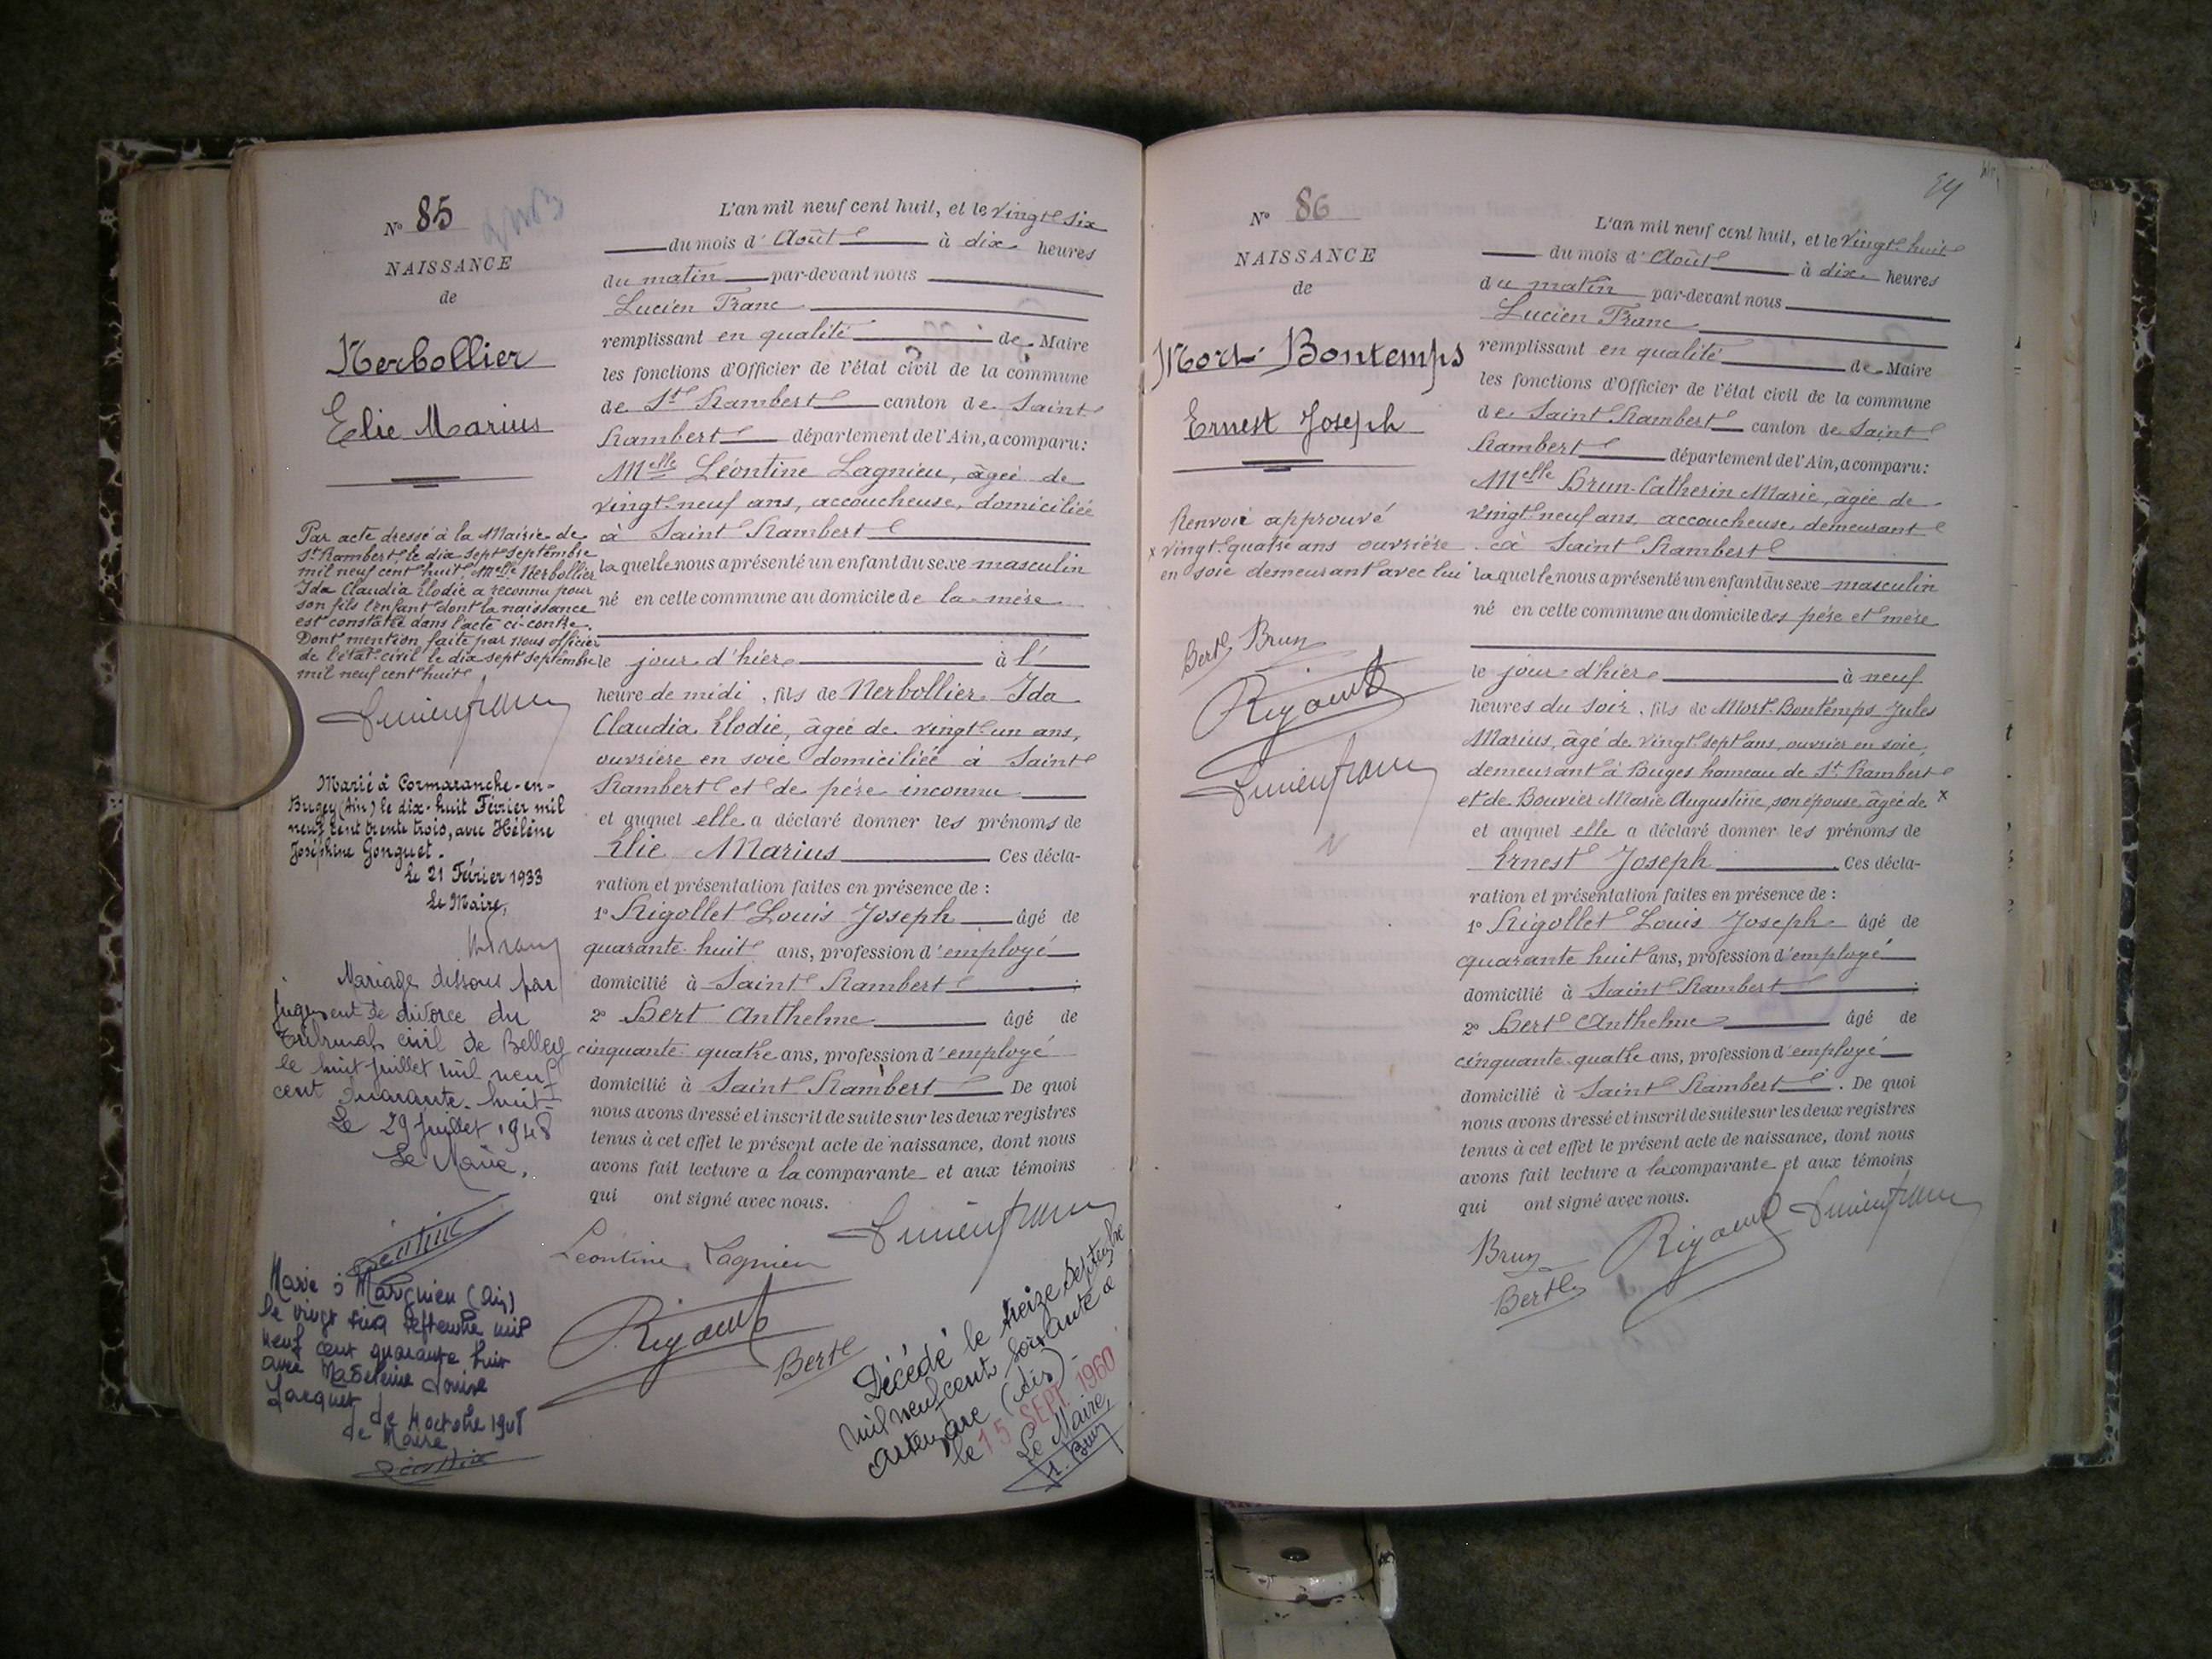 N° 85
NAISSANCE
de
Nerbollier
Elie Marius
Par acte dressé à la Mairie de
St Rambert, le dix sept septembre
mil neuf cent huit, Melle Nerbollier
Ida Claudia Elodie a reconnu pour
son fils l'enfant dont la naissance
est constatée dans l'acte ci-contre.
Dont mention faite par nous officier
de l'état-civil le dix sept septembre
mil neuf cent huit
Lucien Franc
Marié à Cormaranche-en-
Bugey (Ain) le dix-huit Février mil
neuf cent trente trois, avec Hélène
Joséphine Gonguet.
Le 21 Février 1933
Le Maire,
Mariage dissous par
jugement de divorce du
Tribunal civil de Belley
le huit juillet mil neuf
cent quarante-huit
Le 29 juillet 1948
Le Maire,
Marié à Marignieu (Ain)
le vingt cinq septembre mil
neuf cent quarante huit
avec Madeleine Louise
Jacquet
le 4 octobre 1948
Le Maire
L'an mil neuf cent huit, et le vingt six
du mois d'Août à dix heures
du matin par-devant nous
Lucien Franc
remplissant en qualité de Maire
les fonctions d'Officier de l'état civil de la commune
de St Rambert canton de Saint
Rambert département de l'Ain, a comparu:
Melle Léontine Lagnieu, âgée de
vingt-neuf ans, accoucheuse, domiciliée
à Saint Rambert
laquelle nous a présenté un enfant du sexe masculin
né en cette commune au domicile de la mère
le jour d'hier à l'
heure de midi, fils de Nerbollier Ida
Claudia Elodie, âgée de vingt-un ans,
ouvrière en soie domiciliée à Saint
Rambert et de père inconnu
et auquel elle a déclaré donner les prénoms de
Elie Marius Ces décla-
ration et présentation faites en présence de :
1° Rigollet Louis Joseph âgé de
quarante-huit ans, profession d'employé
domicilié à Saint Rambert ;
2° Bert Anthelme âgé de
cinquante-quatre ans, profession d'employé
domicilié à Saint Rambert De quoi
nous avons dressé et inscrit de suite sur les deux registres
tenus à cet effet le présent acte de naissance, dont nous
avons fait lecture a la comparante et aux témoins
qui ont signé avec nous.
Lucien Franc
Léontine Lagnieu
Bert
Décédé le treize septembre
mil neuf cent soixante à
Artemare (Ain)
le 15 SEPT 1960
Le Maire,
Brun
N° 86
NAISSANCE
de
Mort-Bontemps
Ernest Joseph
Renvoi approuvé
x vingt-quatre ans ouvrière
en soie demeurant avec lui
Bert Brun
Lucien Franc
L'an mil neuf cent huit, et le vingt-huit
du mois d'Août à dix heures
du matin par-devant nous
Lucien Franc
remplissant en qualité de Maire
les fonctions d'Officier de l'état civil de la commune
de Saint Rambert canton de Saint
Rambert département de l'Ain, a comparu:
Melle Brun-Catherin Marie, âgée de
vingt-neuf ans, accoucheuse demeurant
à Saint Rambert
laquelle nous a présenté un enfant du sexe masculin
né en cette commune au domicile des père et mère
le jour d'hier à neuf
heures du soir, fils de Mort-Bontemps Jules
Marius, âgé de vingt-sept ans, ouvrier en soie,
demeurant à Buges hameau de St Rambert
et de Bouvier Marie Augustine, son épouse, âgée de x
et auquel elle a déclaré donner les prénoms de
Ernest Joseph Ces décla-
ration et présentation faites en présence de :
1° Rigollet Louis Joseph âgé de
quarante huit ans, profession d'employé
domicilié à Saint Rambert ;
2° Bert Anthelme âgé de
cinquante-quatre ans, profession d'employé
domicilié à Saint Rambert. De quoi
nous avons dressé et inscrit de suite sur les deux registres
tenus à cet effet le présent acte de naissance, dont nous
avons fait lecture a la comparante et aux témoins
qui ont signé avec nous.
Lucien Franc
Brun
Bert